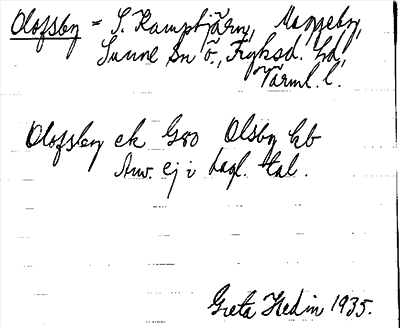 Olofsby = S. Kamptjärn, Moggeby,
Sunne Sn ö., Fryksd. hd,
Värml. l.
Olofsby ek G80 Olsby kb
Anv. ej i dagl. tal.
Greta Hedin 1935.